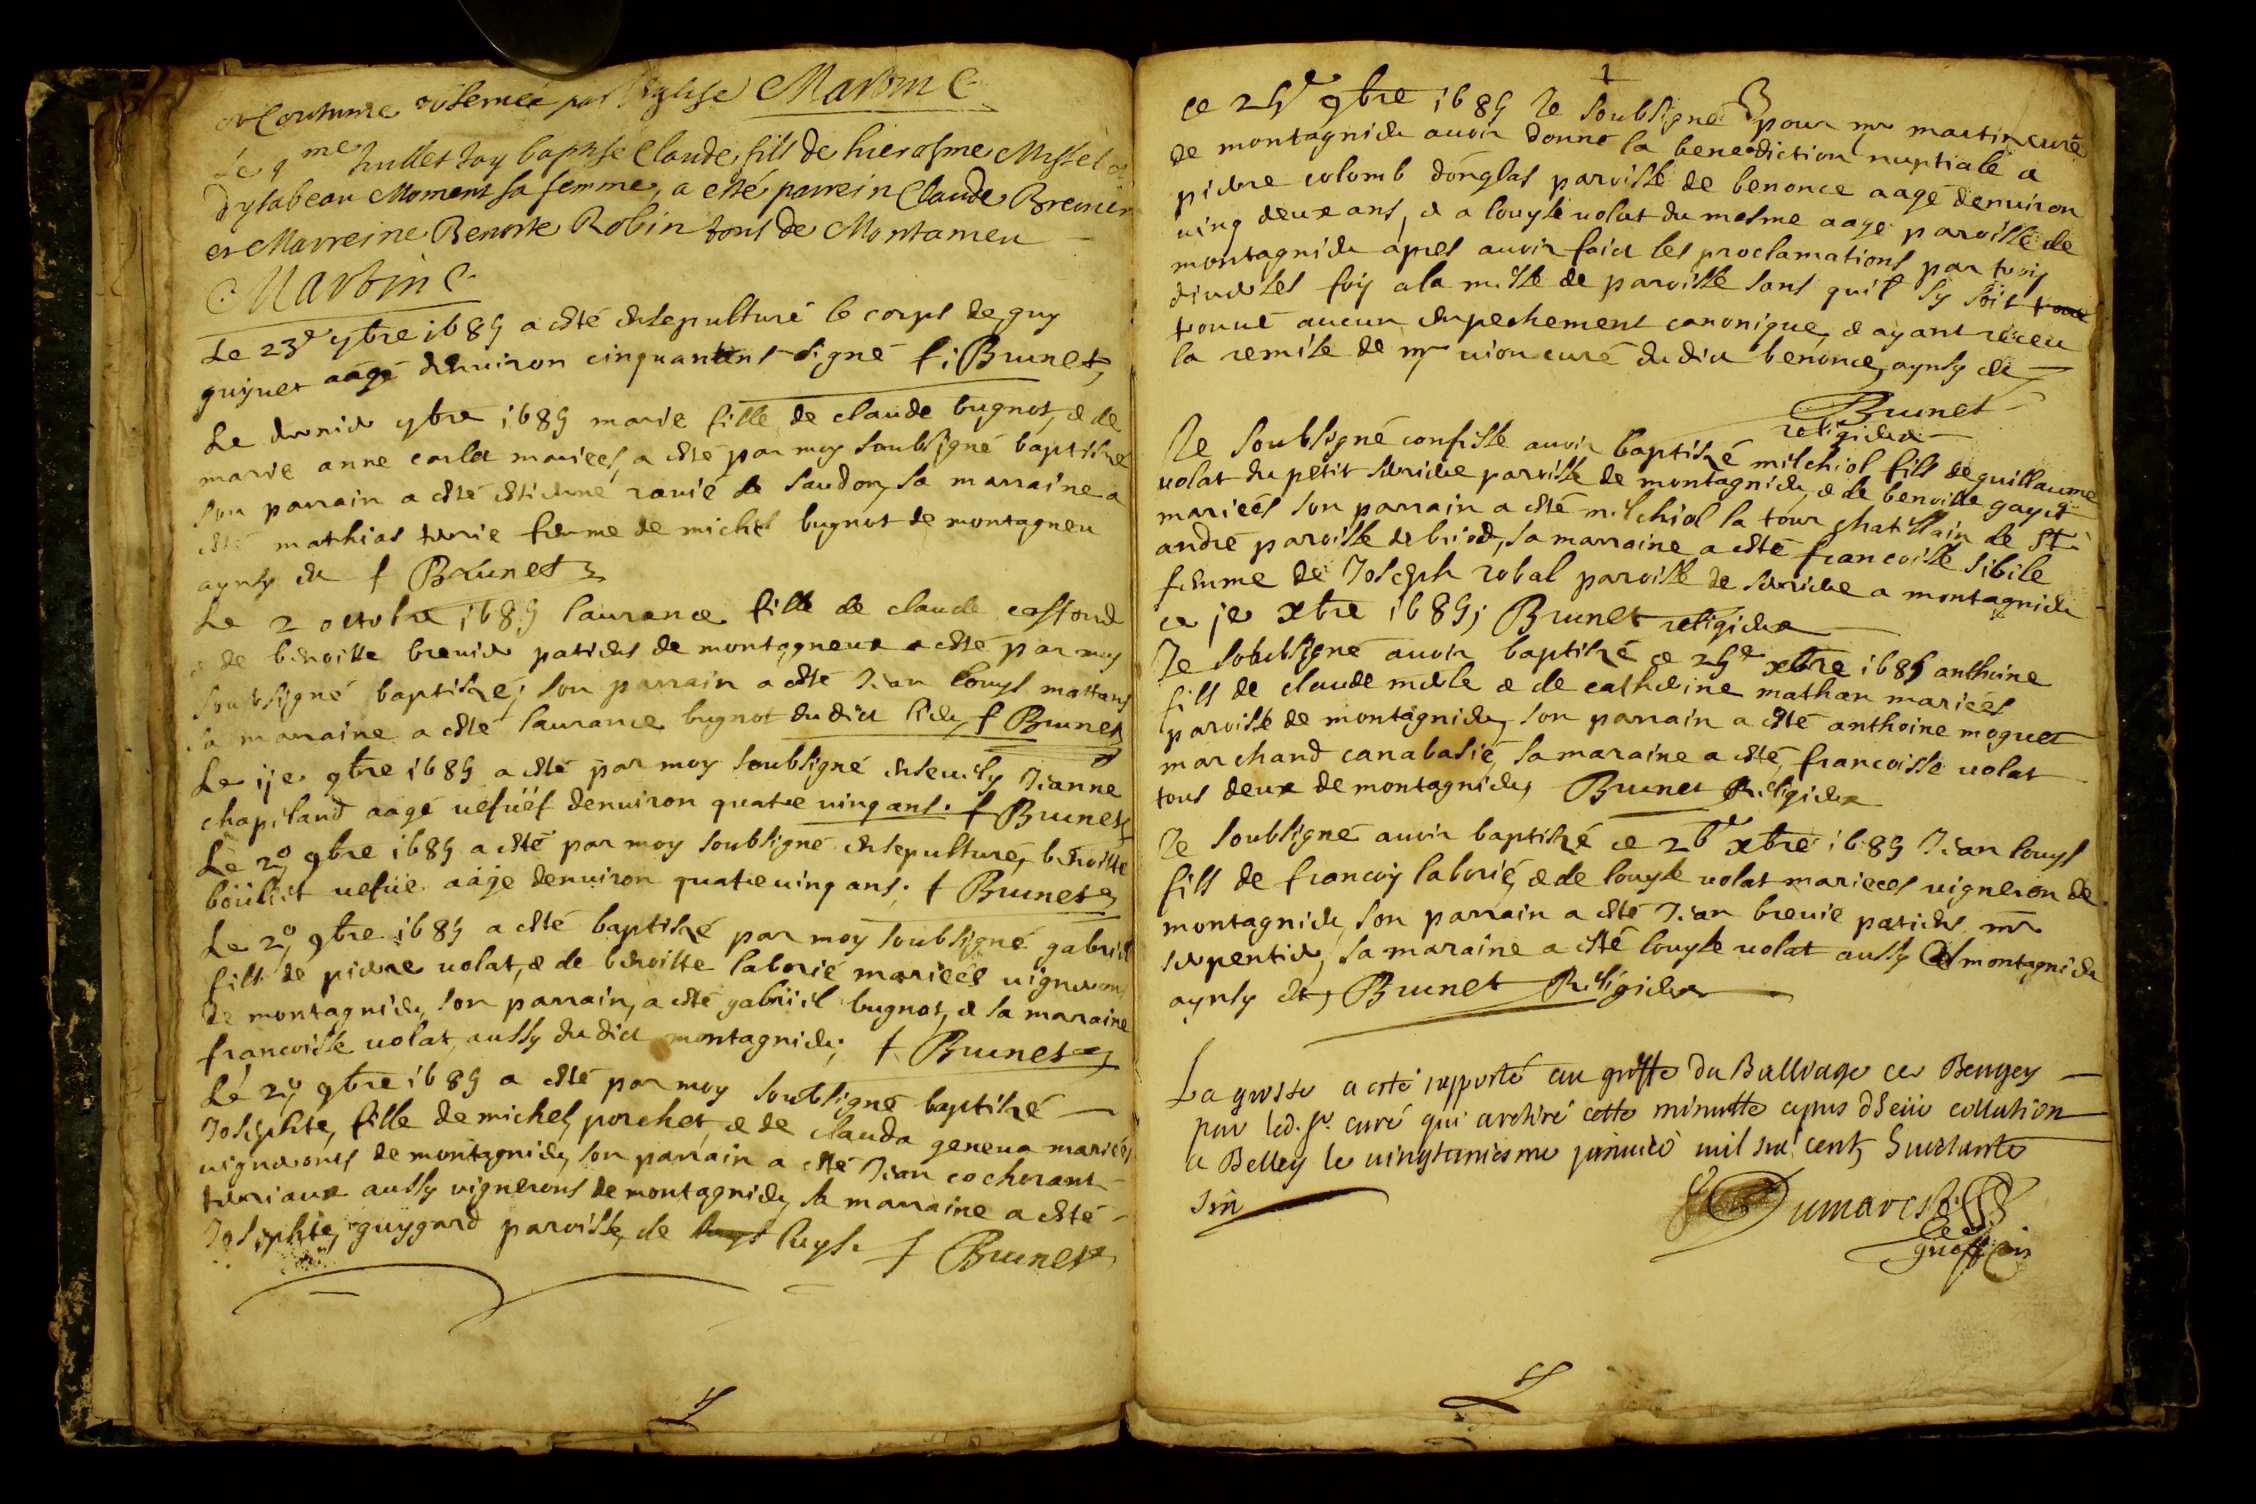 et Coutume observée par l'Eglise Martin C.
Le 9me Juillet Jay baptisé Claude fils de hierosme
d'ysabeau Moment sa femme, a esté parrein Claude Brevier
et Marreine Benoite Robin tous de Montaneu
Martin C.
Le 23e 7bre 1689 a esté ensepulturé le corps de guy
guynet aagé denuiron cinquantens signé f: Brunet
Le dernier 7bre 1689 marie fille de claude bugnot, & de
marie anne carlet mariees, a esté par moy soubsigné baptisée
son parrain a esté estienne ravié de saudon, sa marraine a
esté mathias terrie femme de michel bugnot de montagneu
aynsy est f Brunet
Le 2 octobre 1689 laurance fille de claude
& de benoiste brevier paties de montagneux a esté par moy
soubsigné baptisée; son parrain a esté Jean louys
sa marraine a esté laurance bugnot du dict lieu, f Brunet
Le ije 9bre 1689 a esté par moy soubsigné enseuely Jeanne
chapiland aagé uefüef denuiron quatre uing ans. f Brunet
Le 9bre 1689 a esté par moy soubsigné ensepulturé, benoiste
uefüe aagé denuiron quatre uing ans; f Brunet
Le 9bre 1689 a esté baptisé par moy soubsigné gabriel
fils de pierre uolat, & de benoiste laborié mariees uignerons
de montagnieu, son parrain, a esté gabriel bugnot, & sa maraine
francoise uolat, aussy du dict montagnieu; f Brunet
Le 9bre 1689 a esté par moy soubsigné baptisé
Josephte, fille de michel porchet, & de clauda geneua mariees
uignerons de montagnieu, son parrain a esté Jean cochorant
aussy vignerons de montagnieu, sa marraine a esté
Josephte guygard paroisse, de luys. f Brunet
ce 25e 9bre 1689 Je soubsigné pour mr martin curé
de montagnieu auoir donné la benediction nuptiale a
pierre colomb dónglas paroisse de benonce aagé denuiron
uing deux ans, & a louyse uolat du mesme aage paroisse de
montagnieu apres auoir faict les proclamations par trois
diuerses foy a la messe de paroisse sans quil sy soit
trouué aucun enpechement canonique, & ayant receu
la remise de mr uion curé du dict benonce, aynsy est
Brunet
religieux
Je soubsigné confesse auoir baptisé milchiol fils de guillaume
uolat du petit serrieve paroisse de montagnieu, & de benoiste gayet
mariees son parrain a esté milchiol la tour chatelain de St.
andré paroisse de briod, sa marraine a esté francoise sibile
femme de Joseph robal paroisse de serrieve a montagnieu
ce je xbre 1689; Brunet religieux
Je soubsigné auoir baptisé ce 25e xbre 1689 anthoine
fils de claude & de catherine mathan mariees
paroisse de montagnieu, son parrain a esté anthoine moguet
marchand canabasié, sa maraine a esté, francoisse uolat
tous deux de montagnieu, Brunet Religieux
Je soubsigné auoir baptisé ce 26e xbre 1689 Jean louys
fils de francoy laborié, & de louyse uolat mariees vigneron de
montagnieu, son parrain a esté Jean brevié paties mr
serpentier, sa maraine a esté louyse uolat aussy de montagnieu
aynsy est, Brunet Religieux
La grosse a esté rapporté au greffe du Balliage de Beugey
par led. sr. curé qui a retiré cette minutte apres deüe collation
a Belley le janvier mil six cent
six
greffier